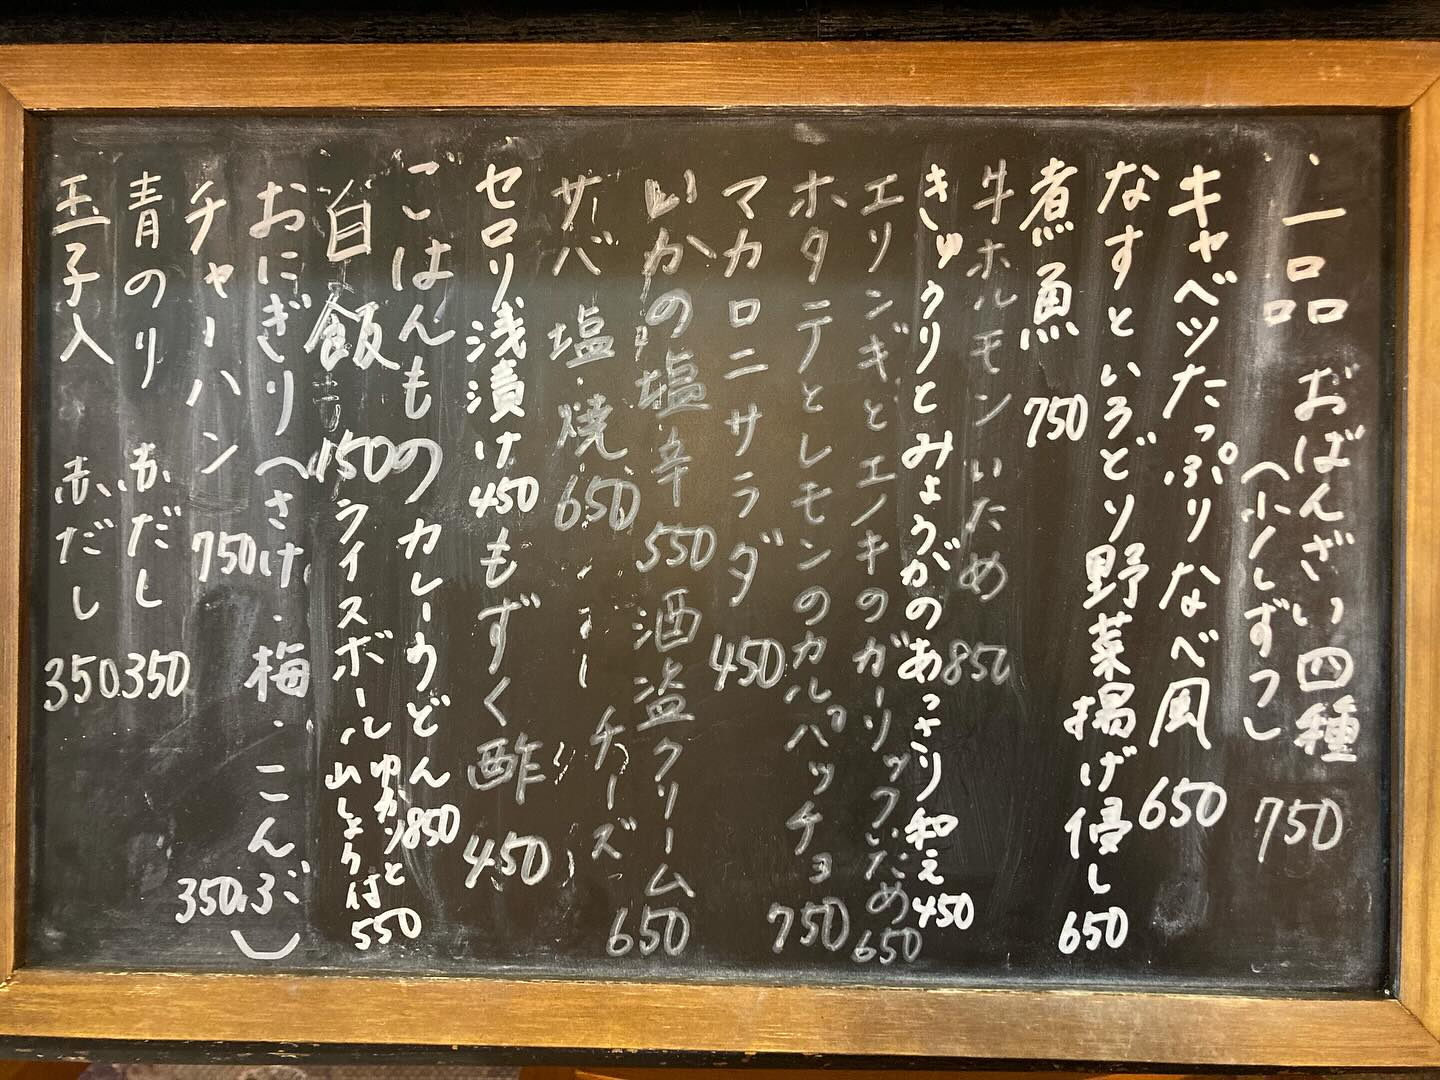 一品
おばんざい四種
(少しずつ) 750
キャベツたっぷりなべ風 650
なすといろどり野菜揚げ浸し 650
煮魚 750
牛ホルモンいため 850
きゅうりとみょうがのあっさり和え 450
エリンギとエノキのガーリックいため 650
ホタテとレモンのカルパッチョ 750
マカロニサラダ 450
いかの塩辛 550
酒盗クリームチーズ 650
サバ塩焼 650
セロリ浅漬け 450
もずく酢 450
ごはんもの
カレーうどん 850
白飯 150
ライスボール 山しょう付 550
おにぎり(さけ・梅・こんぶ) 350
チャーハン 750
青のり 赤だし 350
玉子入 赤だし 350